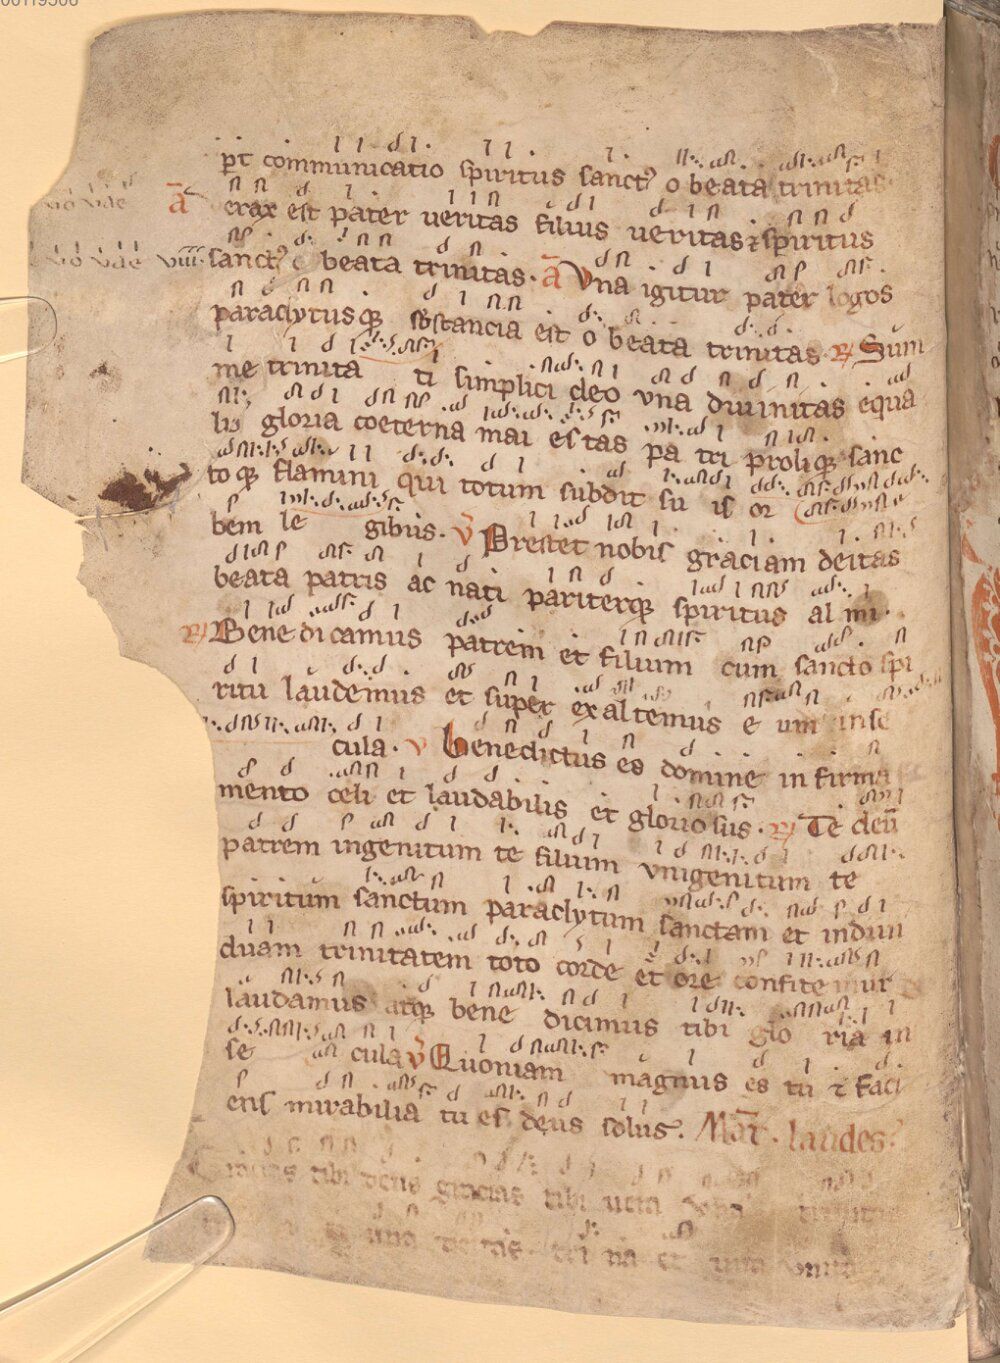 00119506
p̄t communicatio spiritus sanctꝰ o beata trinitas
ā erax est pater veritas filius veritas ⁊ spiritus
sanctꝰ o beata trinitas. ā Una igitur pater logos
viii
paraclytusqꝫ sb̄stancia est o beata trinitas. ℟ Sum
me trinita ti simplici deo vna divinitas equa
lis gloria coeterna maiestas pa tri proliqꝫ sanc
toqꝫ flamini qui totum subdit su is or
bem le gibus. v̄ Prestet nobis graciam deitas
beata patris ac nati pariterqꝫ spiritus al mi.
℟ Benedicamus patrem et filium cum sancto spi
ritu laudemus et super exaltemus e um in se
cula. v benedictus es domine in firma
mento celi et laudabilis et gloriosus. ℟ Te deū
patrem ingenitum te filium vnigenitum te
spiritum sanctum paraclytum sanctam et indivi
duam trinitatem toto corde et ore confite mur
laudamus atqꝫ bene dicimus tibi glo ria in
se cula v̄ Quoniam magnus es tu ⁊ faci
ens mirabilia tu es deus solus. Mat̄. laudes.
tibi deus gracias tibi vera
una tri na et una